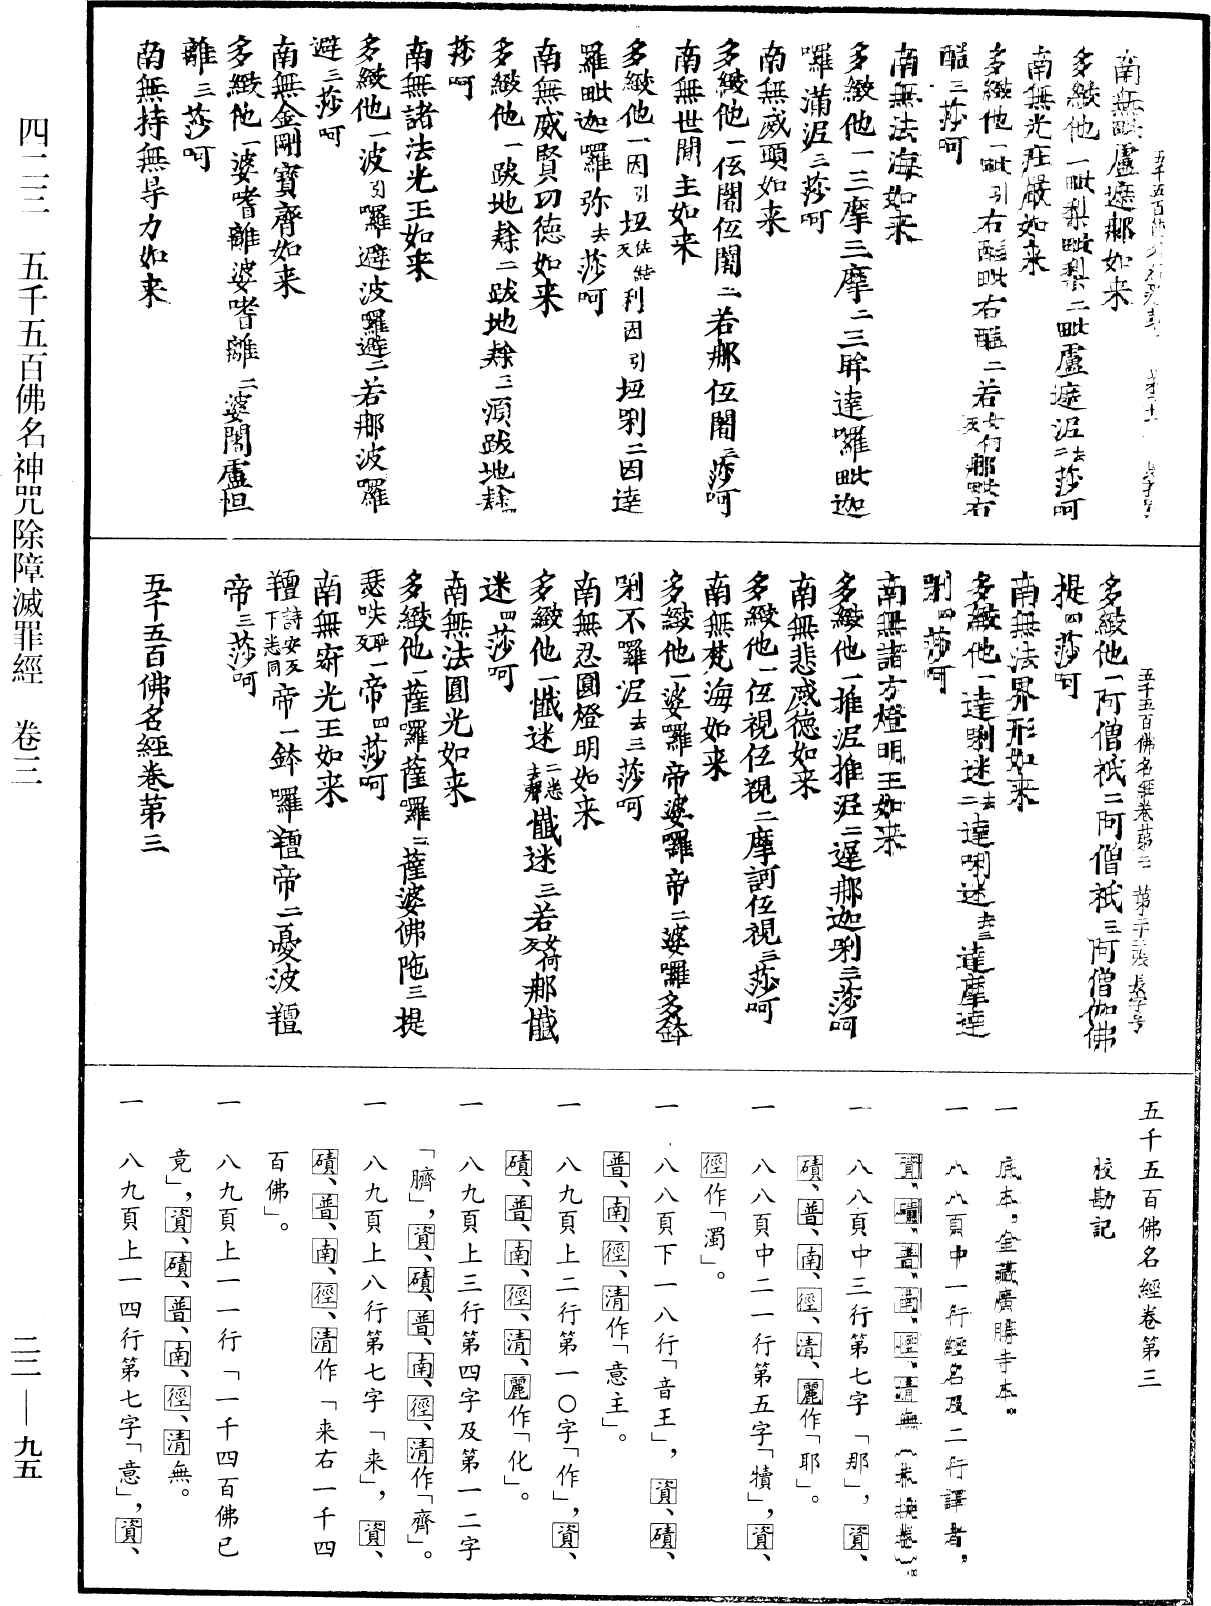 四二三　五千五百佛名神咒除障滅罪經　卷三
二二—九五
南無毗盧遮那如来
多緻他一毗梨毗梨二毗盧遮涩去二莎呵
南無光莊嚴如来
多緻他一毗引右醯毗右醯二若女何反那毗右
醯三莎呵
南無法海如来
多緻他一三摩三摩二三眸達囉毗迦
囉滿涩三莎呵
南無威頭如来
多緻他一伭闍伍闍二若那伍闍三莎呵
南無世間主如来
多緻他一因引坘佐结反利因引坘唎二因達
羅毗迦羅弥去莎呵
南無威賢功德如来
多緻他一跋地耪二跋地耪三湏跋地耪四
莎呵
南無諸法光王如来
多緻他一波引囉避波囉避二若那波羅
避三莎呵
南無金剛寶齊如来
多緻他一婆嗜離婆嗜離二婆闍盧怛
離三莎呵
南無持無导力如来
多緻他一阿僧祇二阿僧祇三阿僧伽佛
提四莎呵
南無法界形如来
多緻他一達唎迷去二達唎迷去三達摩達
唎四莎呵
南無諸方燈明王如来
多緻他一推涩推涩二遲那迦唎三莎呵
南無悲威德如来
多緻他一伍視伍視二摩訶伍視三莎呵
南無梵海如来
多緻他一婆羅帝婆羅帝二婆囉多鉢
唎不囉涩去三莎呵
南無忍圓燈明如来
多緻他一懺迷二悉去聲懺迷三若女何反那懺
迷四莎呵
南無法圓光如来
多緻他一薩囉薩囉二薩婆佛陁三提
瑟咥耻失反一帝四莎呵
南無竒光王如来
多緻他一鉢囉羶帝二憂波羶
帝三莎呵
五千五百佛名經卷第三
五千五百佛名經卷第三
校勘記
一　底本，金藏廣勝寺本。
一　八八頁中一行經名及二行譯者，
資、磧、普、南、徑、清無（未换卷）。
一　八八頁中三行第七字「那」，資、
磧、普、南、徑、清、麗作「耶」。
一　八八頁中二一行第五字「犢」，資、
徑作「濁」。
一　八八頁下一八行「音王」，資、磧、
普、南、徑、清作「意主」。
一　八九頁上二行第一〇字「作」，資、
磧、普、南、徑、清、麗作「化」。
一　八九頁上三行第四字及第一二字
「臍」，資、磧、普、南、徑、清作「齊」。
一　八九頁上八行第七字「来」，資、
磧、普、南、徑、清作「来右一千四
百佛」。
一　八九頁上一一行「一千四百佛已
竟」，資、磧、普、南、徑、清無。
一　八九頁上一四行第七字「意」，資、